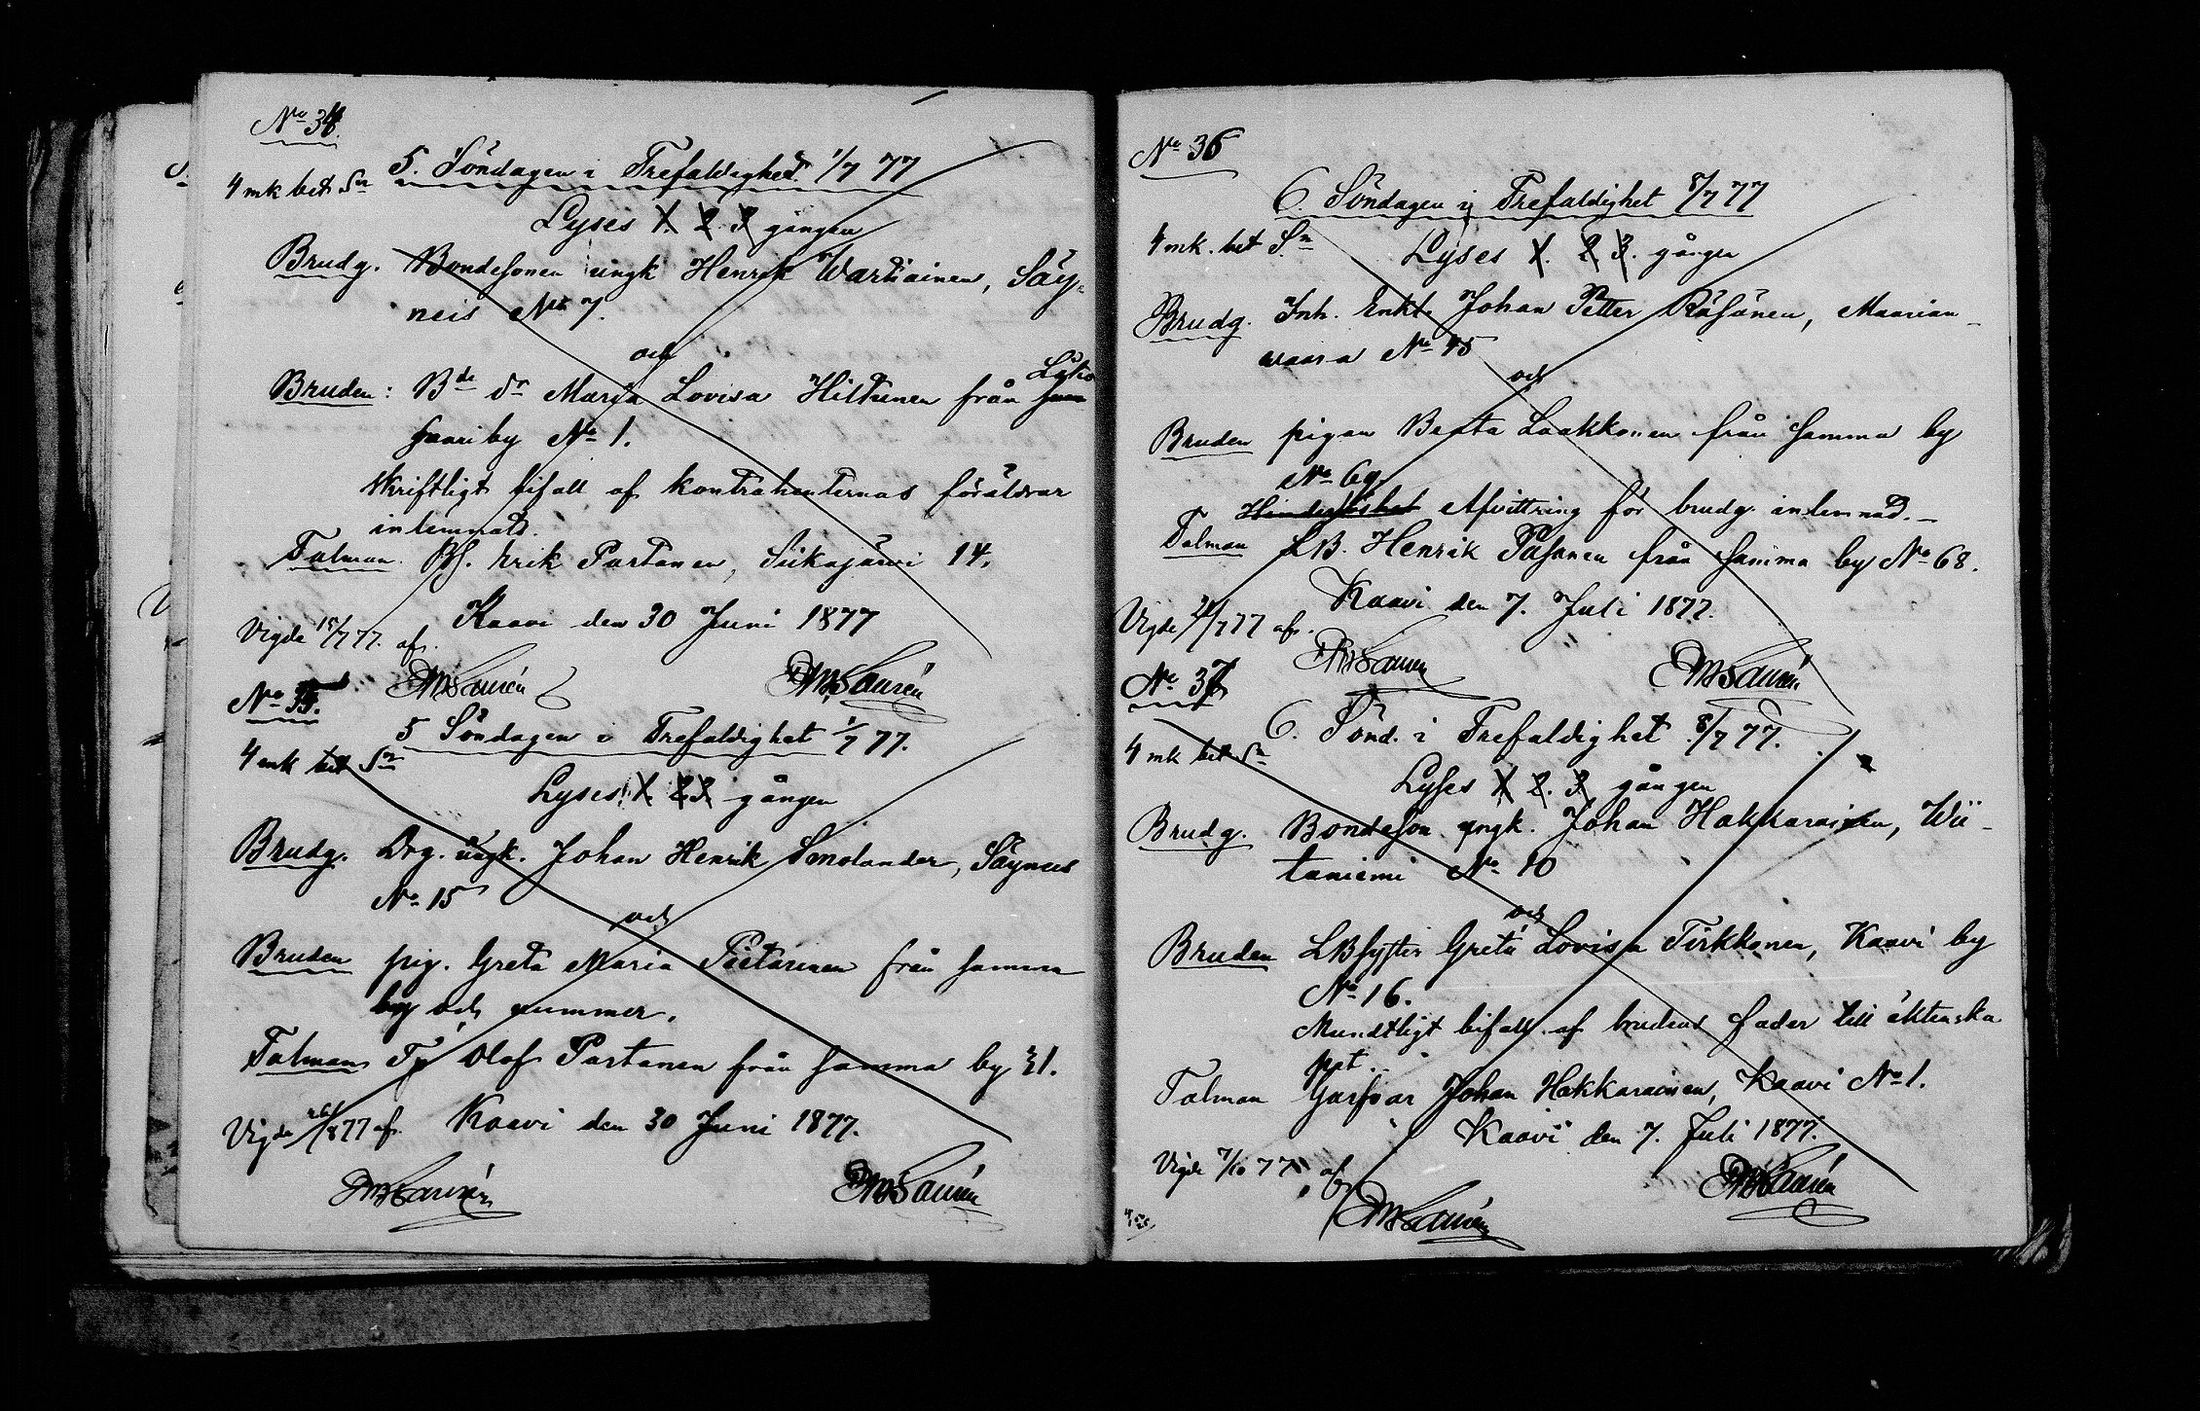 No 34.
5. Söndagen i Trefaldighet 1/7 77
4 mk bet Sn
Lyses 1. 2. 3 gången
Brudg. Bondesonen ungk Henrik Wartiainen, Säy-
neis No 7.
och
Bruden: Bde dr Maria Lovisa Hiltunen från
saari by No 1.
Skriftligt bifall af kontrahenternas föräldrar
inlemnadt.
Talman. Erik Partanen, Siikajärvi 14.
Kaavi den 30 Juni 1877
Vigde 15/7 77. af.
No 35.
5 Söndagen i Trefaldighet 1/7 77.
4 mk bet Sn
Lyses 1. 2. 3 gången
Brudg. Drg. ungk. Johan Henrik Smolander, Säyneis
No 15
och
Bruden pig. Greta Maria Pietarinen från samma
by och nummer.
Talman Olof Partanen från samma by 21.
Vigde af Kaavi den 30 Juni 1877.
No 36
6. Söndagen i Trefaldighet 8/7 77
4 mk. bet Sn
Lyses 1. 2 3. gången
Brudg. Inh. Enkl. Johan Petter Räsänen, Maarian-
vaara No 45
och
Bruden pigan Beata Laakkonen från samma by
No 69
Afvittring för brudg. inlemnad.
Talman LB. Henrik Räsänen från samma by No 68.
Kaavi den 7. Juli 1877.
Vigde af.
No 37
6. Sönd. i Trefaldighet 8/7 77.
4 mk bet Sn
Lyses 1 2. 3 gången
Brudg. Bondeson ungk. Johan Hakkarainen, Wii-
taniemi No 10
och
Bruden Greta Lovisa Tirkkonen, Kaavi by
No 16.
Mundtligt bifall af brudens fader till äktenska
ppt.
Talman Johan Hakkarainen, Kaavi No 1.
Kaavi den 7. Juli 1877.
Vigde 7/10 77 af